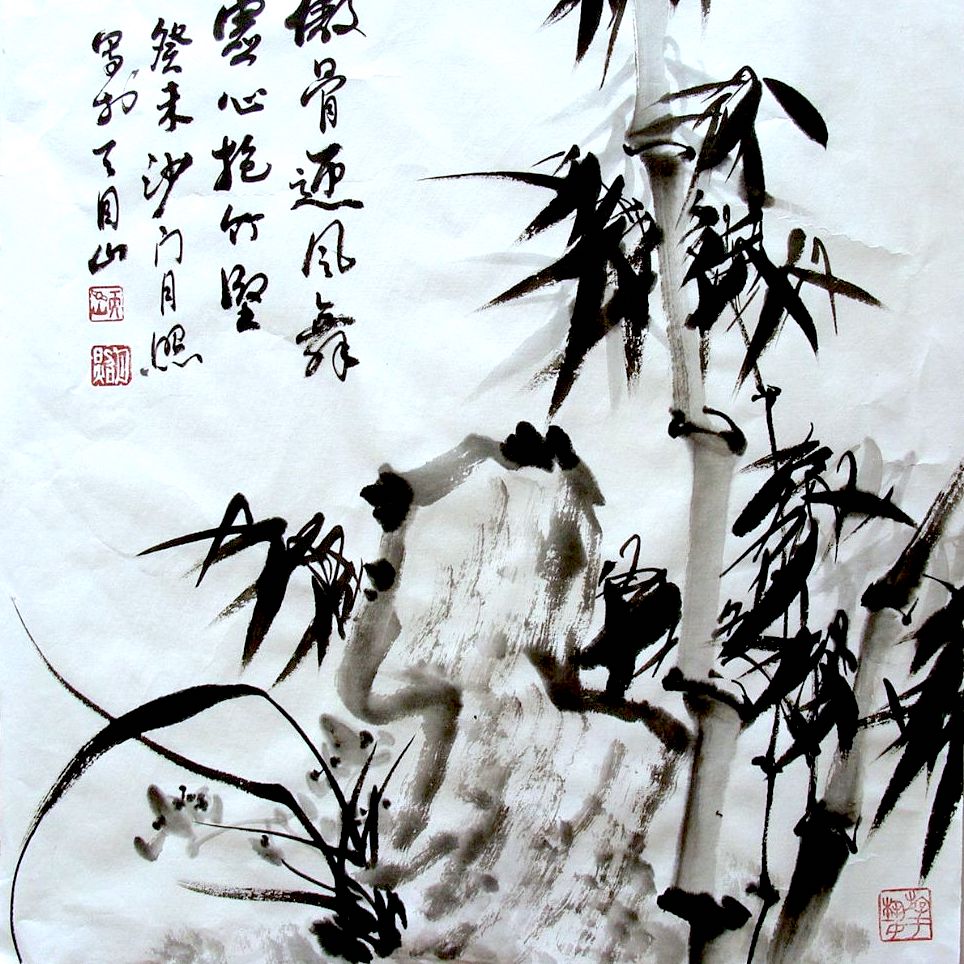 傲骨迎风舞
虚心抱竹坚
癸未沙门月照
写於天目山